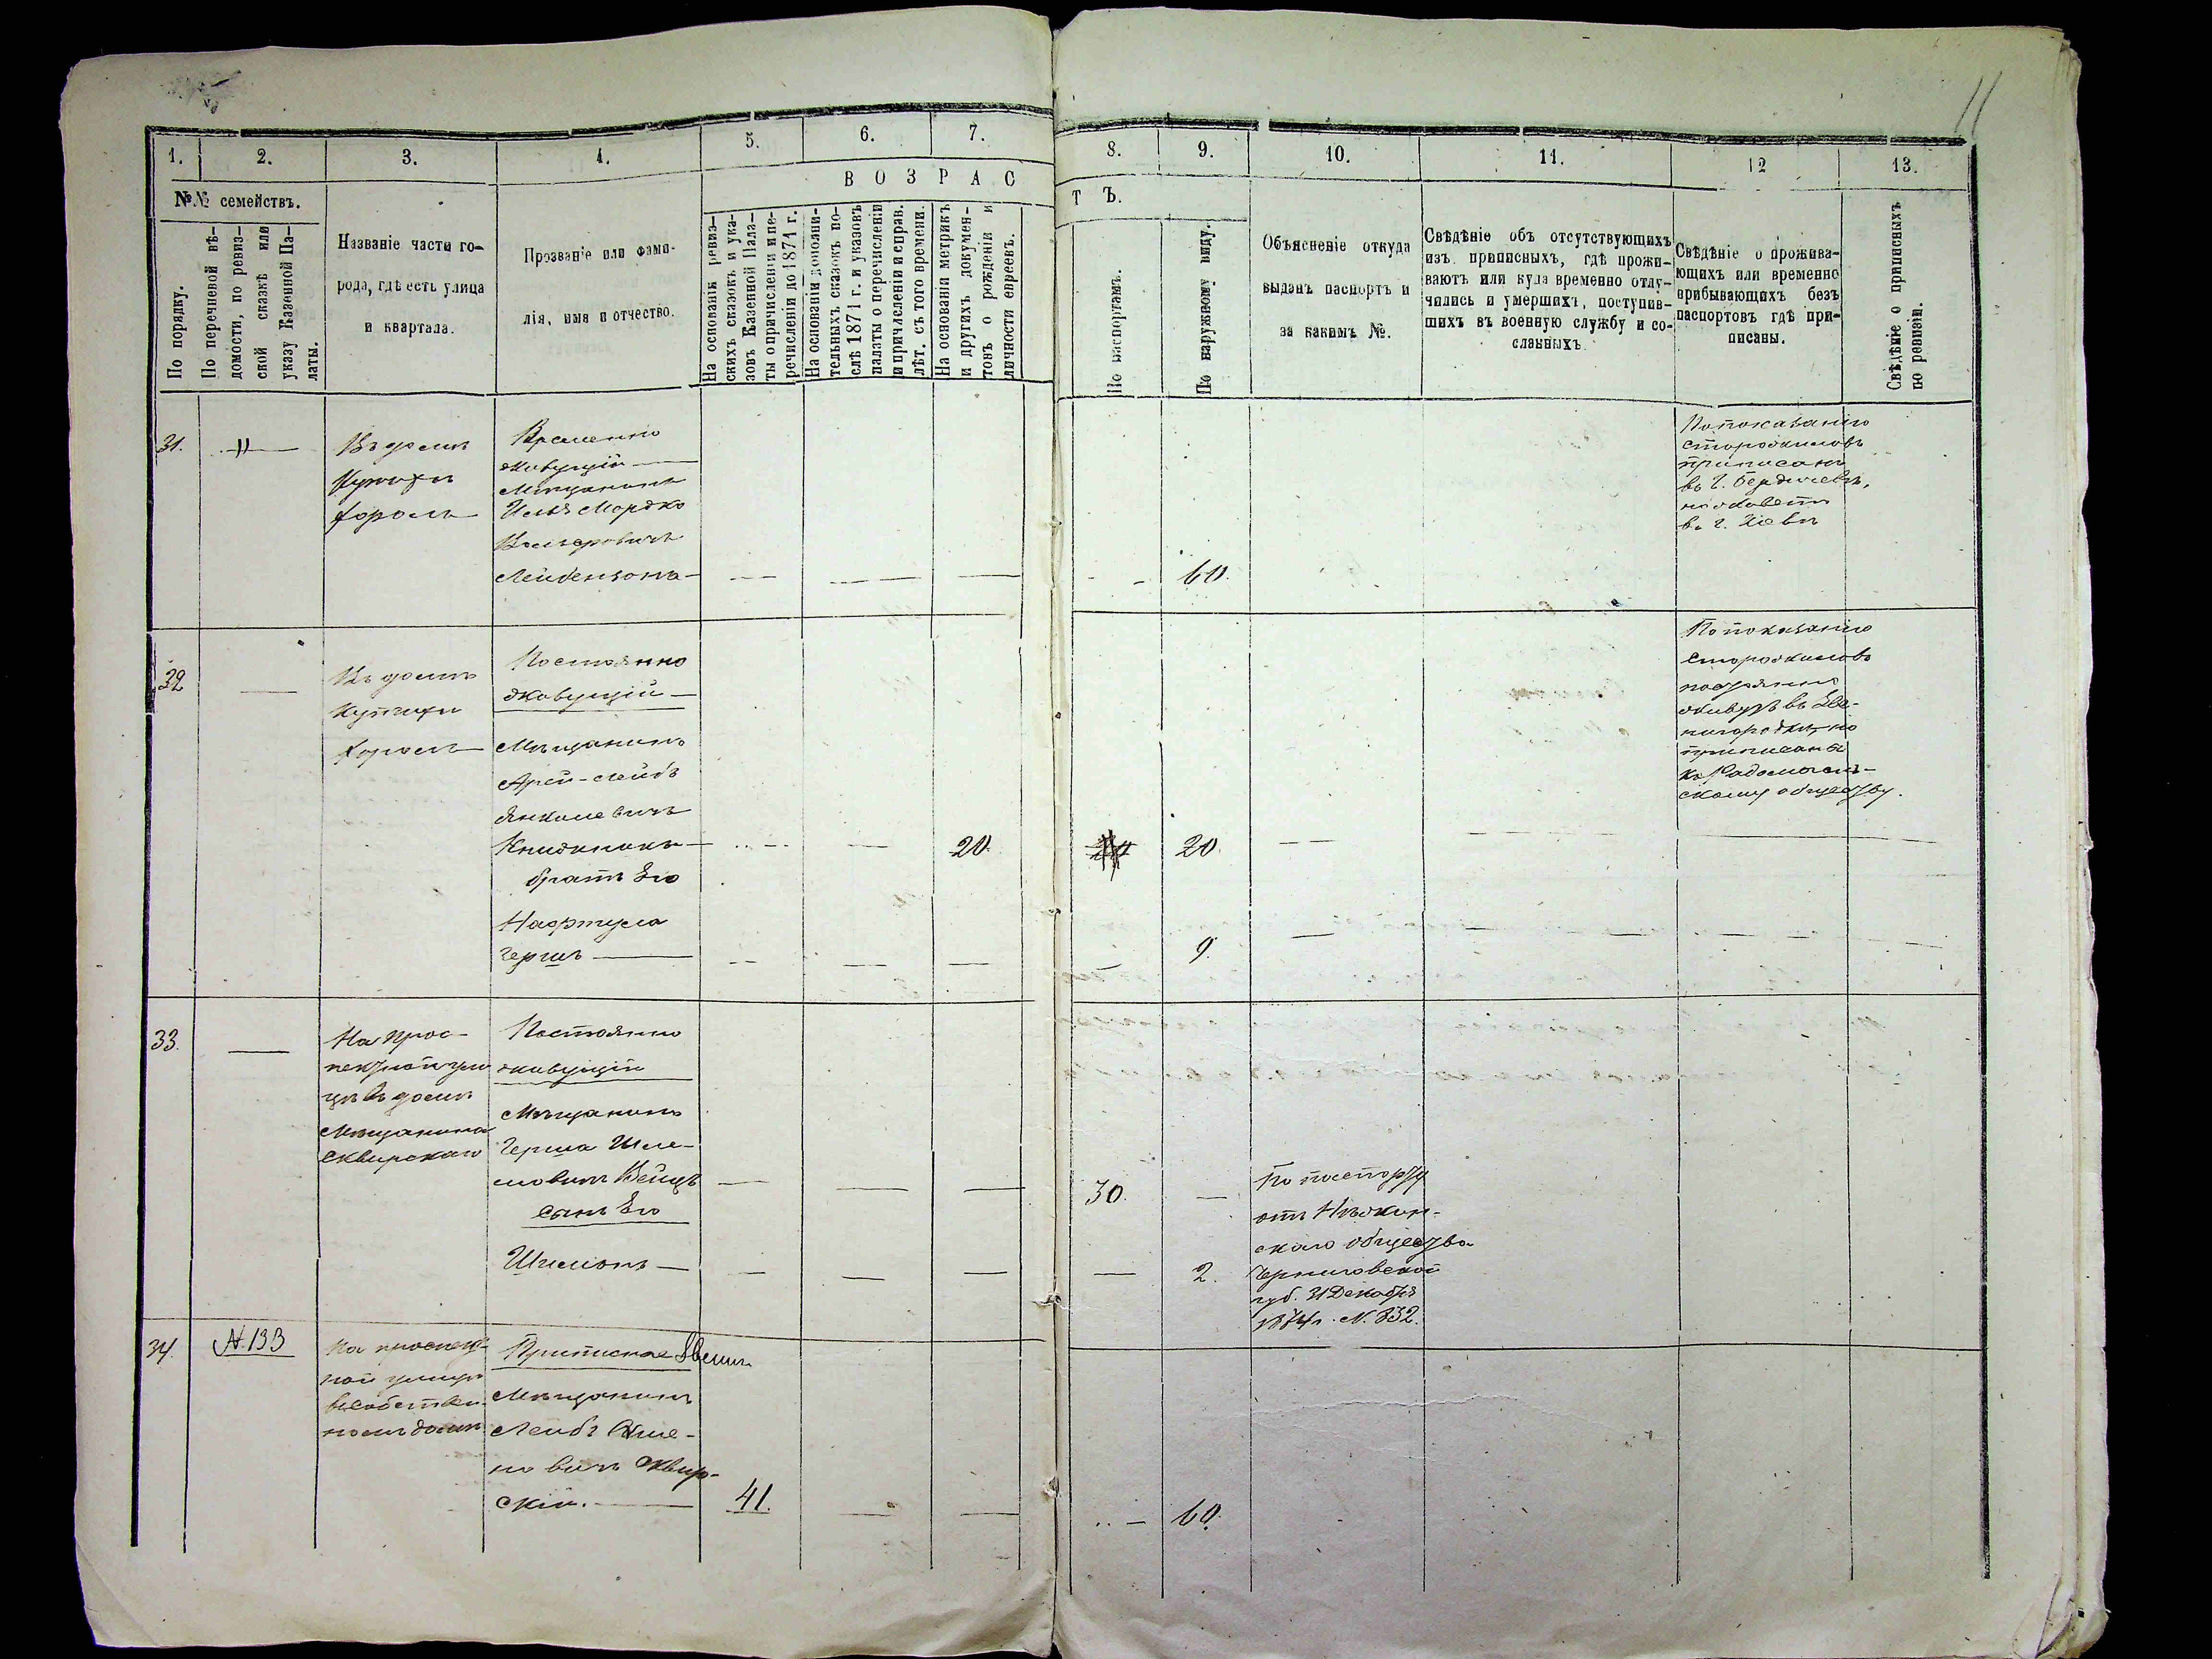 11
1.
2.
3.
4.
5.
6.
7.
8.
9.
10.
11.
12
13.
№№ семействъ.
По порядку.
По перечневой вѣ-
домости, по ревиз-
ской сказкѣ или
указу Казенной Па-
латы.
Названіе части го-
рода, гдѣ есть улица
и квартала.
Прозваніе или фами-
лія, имя и отчество.
ВОЗРАС
ТЪ.
На основаніи ревиз-
скихъ сказокъ и ука-
зовъ Казенной Пала-
ты о причисленіи и пе-
речисленіи до 1871 г.
На основаніи дополни-
тельныхъ сказокъ по-
слѣ 1871 г. и указовъ
палаты о перечисленіи
и причисленіи и справ.
лѣт. съ того времени.
На основаніи метрикъ
и другихъ докумен-
товъ о рожденіи и
личности евреевъ.
По паспортамъ.
По наружному виду.
Объясненіе откуда
выданъ паспортъ и
за какимъ №.
Свѣдѣніе объ отсутствующихъ
изъ приписныхъ, гдѣ прожи-
ваютъ или куда временно отлу-
чились и умершихъ, поступив-
шихъ въ военную службу и со-
сланныхъ.
Свѣдѣніе о прожива-
ющихъ или временно
прибывающихъ безъ
паспортовъ гдѣ при-
писаны.
Свѣдѣніе о приписныхъ
по ревизіи.
31.
Въ доми
Хороль
Временно
живущій
Мѣщанинъ
Мордко
60.
По показанію
сторожиловъ
приписанъ
въ г. Бердичевѣ,
но живетъ
в. г. Кіевѣ
32
Въ домѣ
Хороль
Постоянно
живущій
Мѣщанинъ
Арій-Лейбъ
Янкелевичъ
Книжникъ
20.
20.
братъ Его
Нафтула
Гершъ
9.
По показанію
Сторожиловъ
постоянно
живутъ въ Зве-
нигородкѣ, но
приписаны
къ Радомысль-
скому обществу.
33.
На прос-
пектной ули
цѣ въ доми
Мѣщанина
Сквирскаго
Постоянно
живущій
Мѣщанинъ
Герша Шле-
мовичъ Вейцъ
30.
Сынъ Его
Шлиомъ
2.
По паспорту
отъ Нѣжин-
скаго общества
Черниговской
губ. 31 Декабря
1874 г. N. 832.
34.
N. 133
На проспект-
ной улицѣ
въ собствен-
номъ домѣ
Приписное
Мѣщанинъ
Лейбъ
новичъ Сквир-
скій.
41.
60.